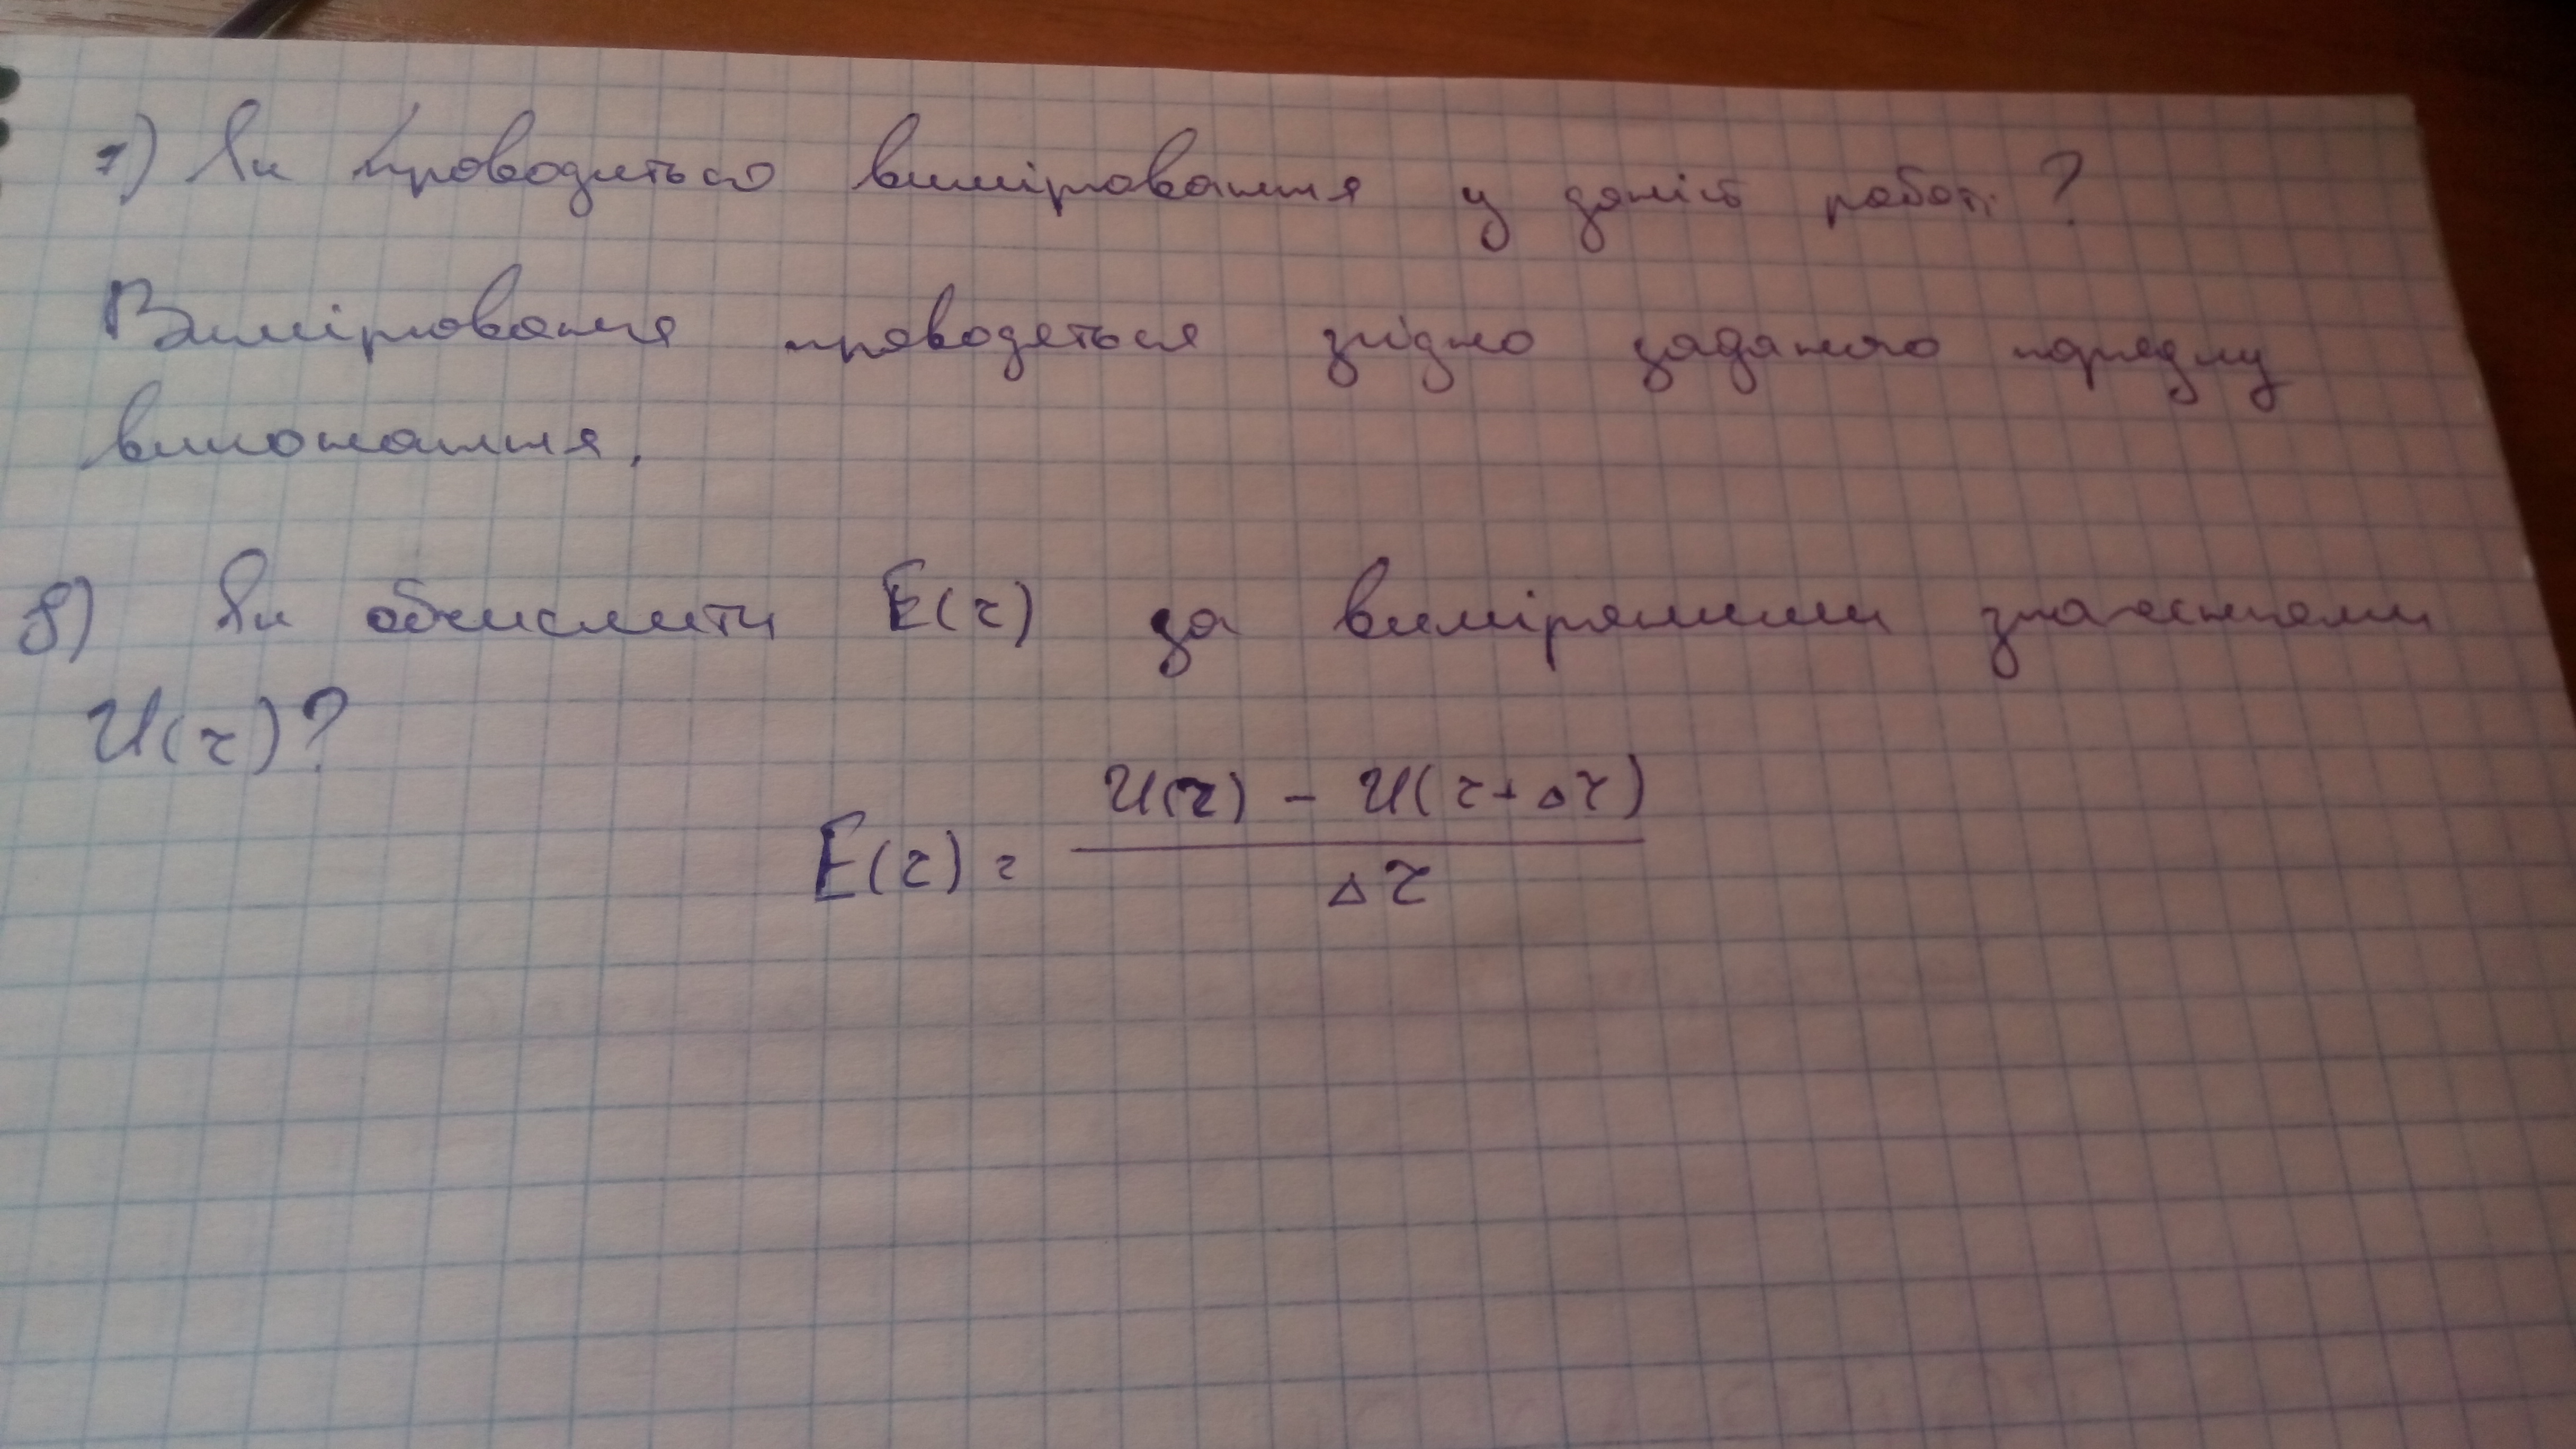 7) Як проводиться вимірювання у даній роботі ?
Вимірювання проводяться згідно заданого порядку
виконання.
8) Як обчислити E(r) за виміряними значеннями
U(r)?
E(r) = \frac{U(r) - U(r+Δr)}{Δr}